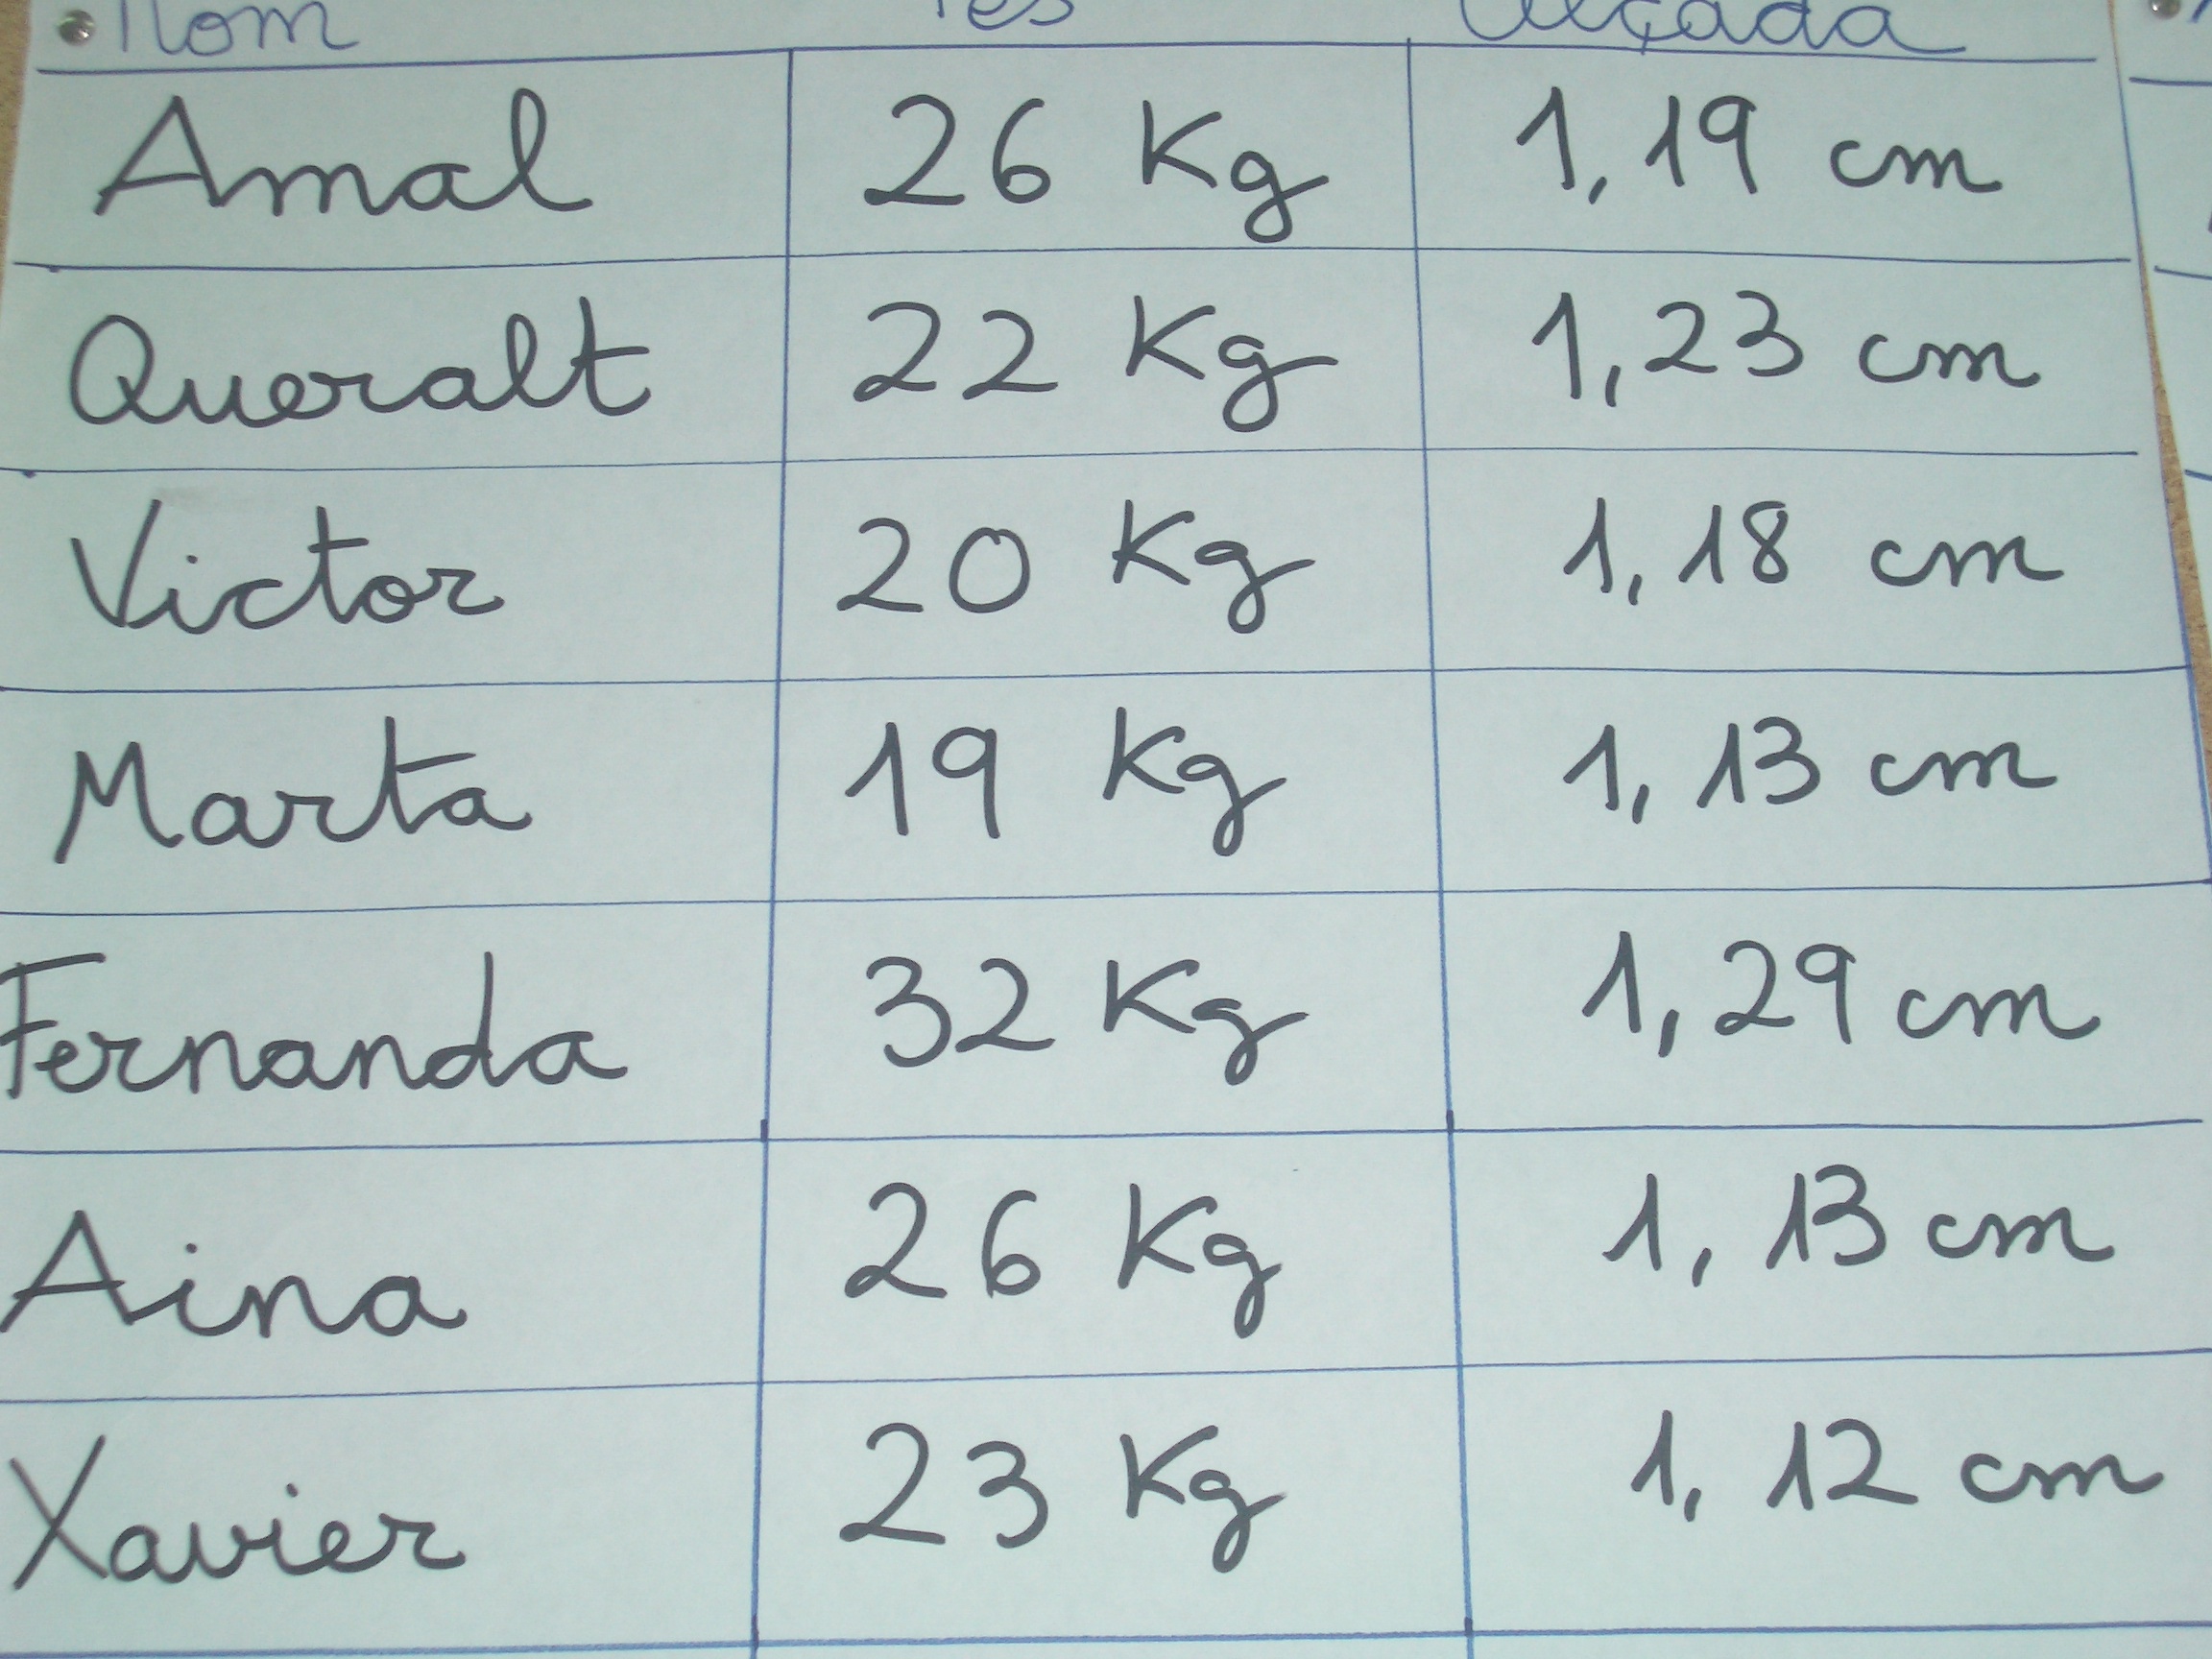 Nom Pes Alçada
Amal 26 Kg 1,19 cm
Queralt 22 Kg 1,23 cm
Victor 20 Kg 1,18 cm
Marta 19 Kg 1,13 cm
Fernanda 32 Kg 1,29 cm
Aina 26 Kg 1,13 cm
Xavier 23 Kg 1,12 cm